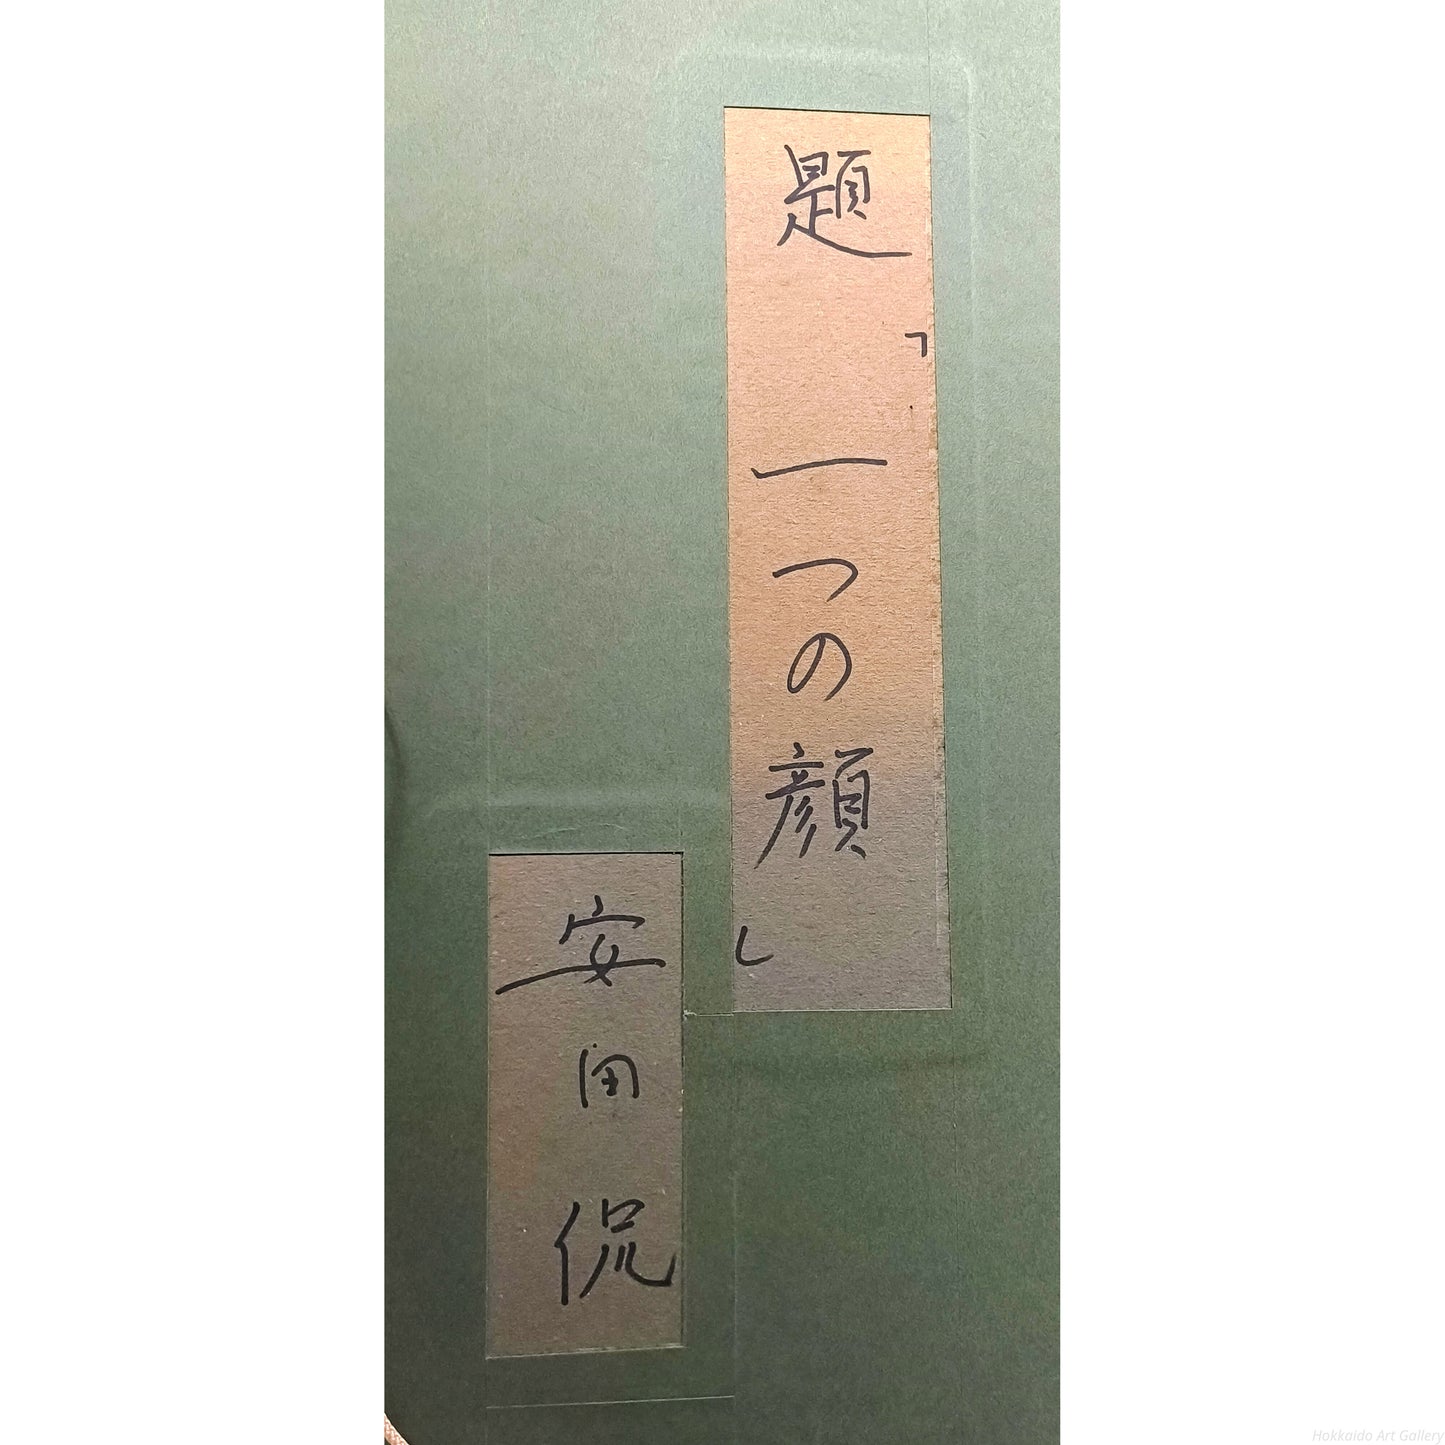 題「一つの顔」
安田侃
Hokkaido Art Gallery